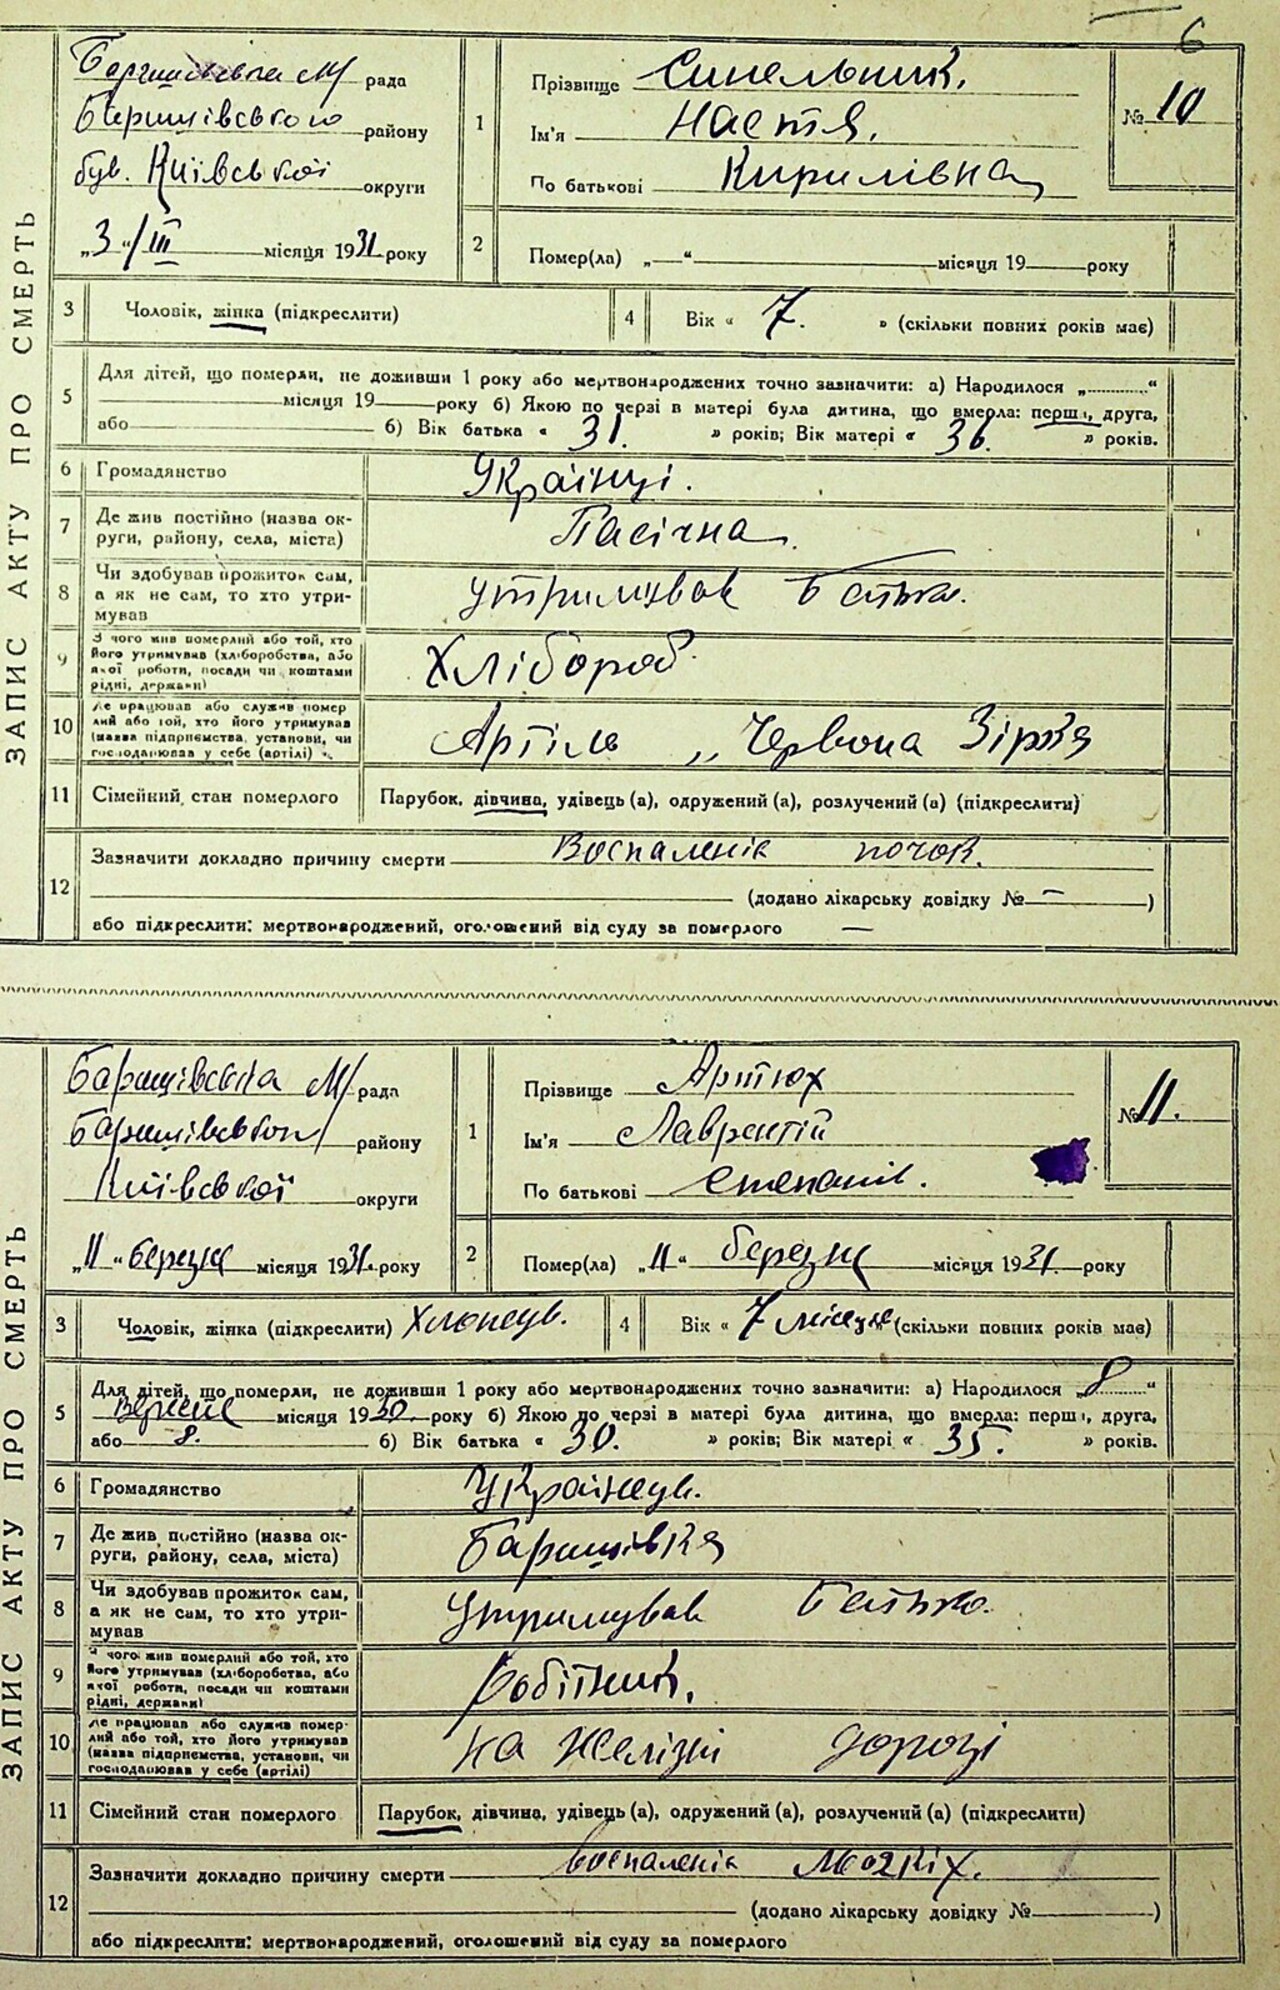 6
ЗАПИС АКТУ ПРО СМЕРТЬ
Баришівська М/рада
Баришівського району
був. Київської округи
„3“/III місяця 1931 року
1 Прізвище Синельник.
Ім'я Настя.
По батькові Кирилівна
№ 10
2 Помер(ла) „—“ місяця 19 року
3 Чоловік, жінка (підкреслити)
4 Вік « 7. » (скільки повних років має)
5 Для дітей, що померли, не доживши 1 року або мертвонароджених точно зазначити: а) Народилося „ “
місяця 19 року б) Якою по черзі в матері була дитина, що вмерла: перша, друга,
або б) Вік батька « 31. » років; Вік матері « 36. » років.
6 Громадянство Українці.
7 Де жив постійно (назва ок-
руги, району, села, міста) Пасічна.
8 Чи здобував прожиток сам,
а як не сам, то хто утри-
мував утримував батько.
9 З чого жив померлий або той, хто
його утримував (хліборобства, або
якої роботи, посади чи коштами
рідні, держави) Хлібороб.
10 Де працював або служив помер
лий або той, хто його утримував
(назва підприємства, установи, чи
господарював у себе (артілі) Артіль „Червона Зірка
11 Сімейний стан померлого Парубок, дівчина, удівець (а), одружений (а), розлучений (а) (підкреслити)
12 Зазначити докладно причину смерти Воспаленія почок.
(додано лікарську довідку № — )
або підкреслити: мертвонароджений, оголошений від суду за померлого —
ЗАПИС АКТУ ПРО СМЕРТЬ
Баришівська М/рада
Баришівського району
Київської округи
„11“ березня місяця 1931. року
1 Прізвище Артюх
Ім'я Лаврентій
По батькові Степанів.
№ 11.
2 Помер(ла) „11“ березня місяця 1931. року
3 Чоловік, жінка (підкреслити) Хлопець.
4 Вік « 7 місяця » (скільки повних років має)
5 Для дітей, що померли, не доживши 1 року або мертвонароджених точно зазначити: а) Народилося „8“
місяця 1930 року б) Якою по черзі в матері була дитина, що вмерла: перша, друга,
або 8. б) Вік батька « 30. » років; Вік матері « 35. » років.
6 Громадянство Українець.
7 Де жив постійно (назва ок-
руги, району, села, міста) Баришівка
8 Чи здобував прожиток сам,
а як не сам, то хто утри-
мував Утримував батько.
9 З чого жив померлий або той, хто
його утримував (хліборобства, або
якої роботи, посади чи коштами
рідні, держави) Робітник.
10 Де працював або служив помер-
лий або той, хто його утримував
(назва підприємства, установи, чи
господарював у себе (артілі) на желізні дорозі
11 Сімейний стан померлого Парубок, дівчина, удівець (а), одружений (а), розлучений (а) (підкреслити)
12 Зазначити докладно причину смерти воспаленія
(додано лікарську довідку № )
або підкреслити: мертвонароджений, оголошений від суду за померлого